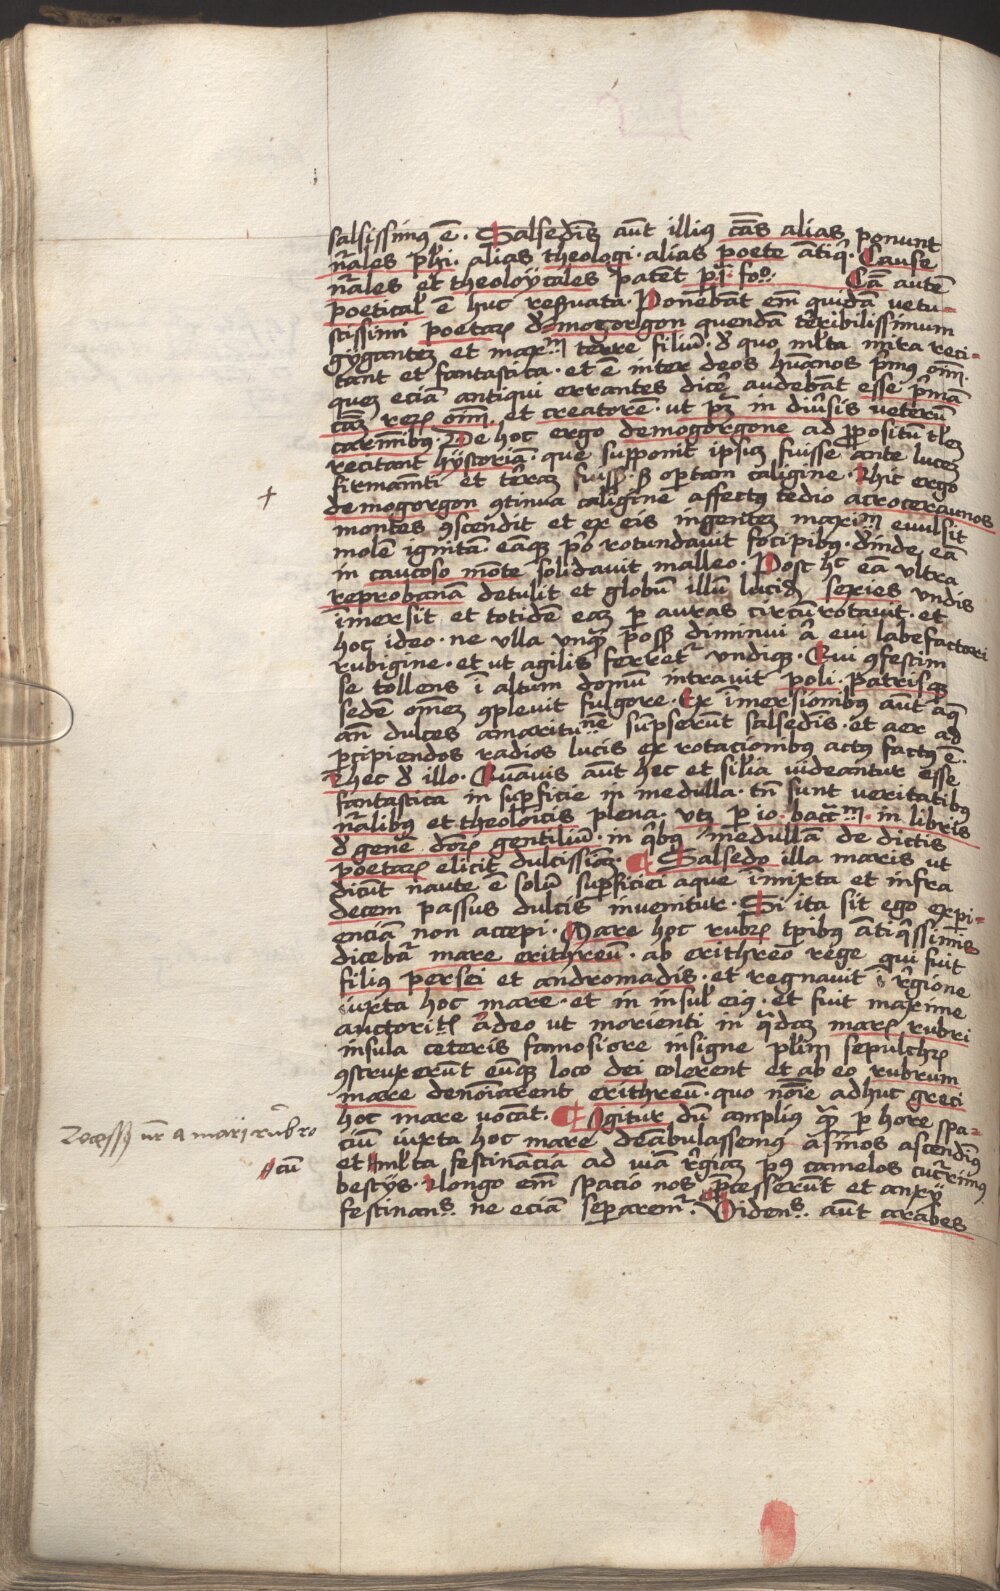 salsissimꝰ ē. Salsedīs aūt illiꝰ cās alias ponunt
nr̄ales phi. alias theologi. alias poete ātiq̄. Cause
nr̄ales et theoloycales patēt pͥ. foᵒ. Cā autē
poetical̄ ē huc reẜuata. Ponebāt em̄ quidā uetu-
stissimi poetaꝝ demogorgon quendā t̄ribilissimum
gygantez et maxᵐ terre filiū. de quo ml̄ta mira reci-
tant et fantastica. et ē inter deos hūanos p̄mꝰ oīm.
quez eciā antiqui errantes dic̄e audebāt esse p̄mā
cāz reꝝ oīm. et creatorē. ut pꝫ in diūsis ueterū
carmībꝰ. De hoc ergo demogorgone ad ꝓpositū tl̄ez
recitant hystoriā. que supponit ipsuz fuisse ante lucez
firmamēti et t̄rāz fuisse. ẜ optam caligine. hic ergo
demogorgon ꝯtinua caliginē affectꝰ tedio acroceraunos
montes ꝯscendit et ex eis ingentez maxīᵐ euulsit
molē ignitā. eāqꝫ p̄o rotundauit focipibꝰ. deīde eā
in caucoso mōte solidauit malleo. Post hͨ eā vltra
reprobanā detulit et globū illū lucid sexies undis
īmersit et totidē eaz p auras circūrotauit. et
hoc ideo. ne vlla unq̄ posset diminui a eui labefactari
rubigine. et ut agilis ferret̄ undiqꝫ. Qui ꝯfestim
se tollens ī altum domū intrauit poli. patrisqꝫ
sedē om̄ez ꝯpleuit fulgore. Ex īmersionibꝰ aūt aq̄
an̄ dulces amaritu.ne supserūt salsedīs. et aer ad
p̄cipiendos radios lucis ex rotacionibꝰ actꝰ factꝰ ē.
hec de illo. Quāuis aūt hec et sil̄ia uideantur esse
fantastica in suꝑficie in medulla. tn̄ sunt ueritatibꝰ
nr̄alibꝰ et theoloicis plena. vtꝫ ꝑ io. baccᵐ. in libris
de gene. deoꝝ gentiliū. in q̄bꝰ medullā de dictis
poetaꝝ elicit dulcissiāz. Salsedo illa maris ut
dicūt naute ē solū suꝑficiei aque īmixta et infra
decem passus dulcis inuenitur. Si ita sit ego expi-
enciā non accepi. Mare hoc rubꝝ tꝑibus ātiq̄ssimis
dicebat̄ mare erithreū. ab erithreo rege qui fuit
filiꝰ persei et andromadis. et regnauit ī r̄gione
iuxta hoc mare. et in insul̄ eiꝰ. et fuit maxime
auctoritꝭ Adeo ut morienti in q̄daz marꝭ rubri
insula ceteris famosiore insigne pl̄im sepulchꝝ
ꝯstruxerūt eūqꝫ loco dei colerent et ab eo rubrum
mare denoīarent erithreū. quo noīe adhuc greci
hoc mare uocāt. Igitur dū amplius q̄ ꝑ hore spa-
ciū iuxta hoc mare deābulassemꝰ asinos ascendimꝰ
et ml̄ta festinancia ad uiā r̄giaz pꝰ camelos cucr̄imꝰ
bestys. longo em̄ spacio nos p̄cesserūt et anxy
festinans. ne eciā seꝑarem̄. Videns. aūt arabes
Recessꝰ nr̄ a mari rubro
cū